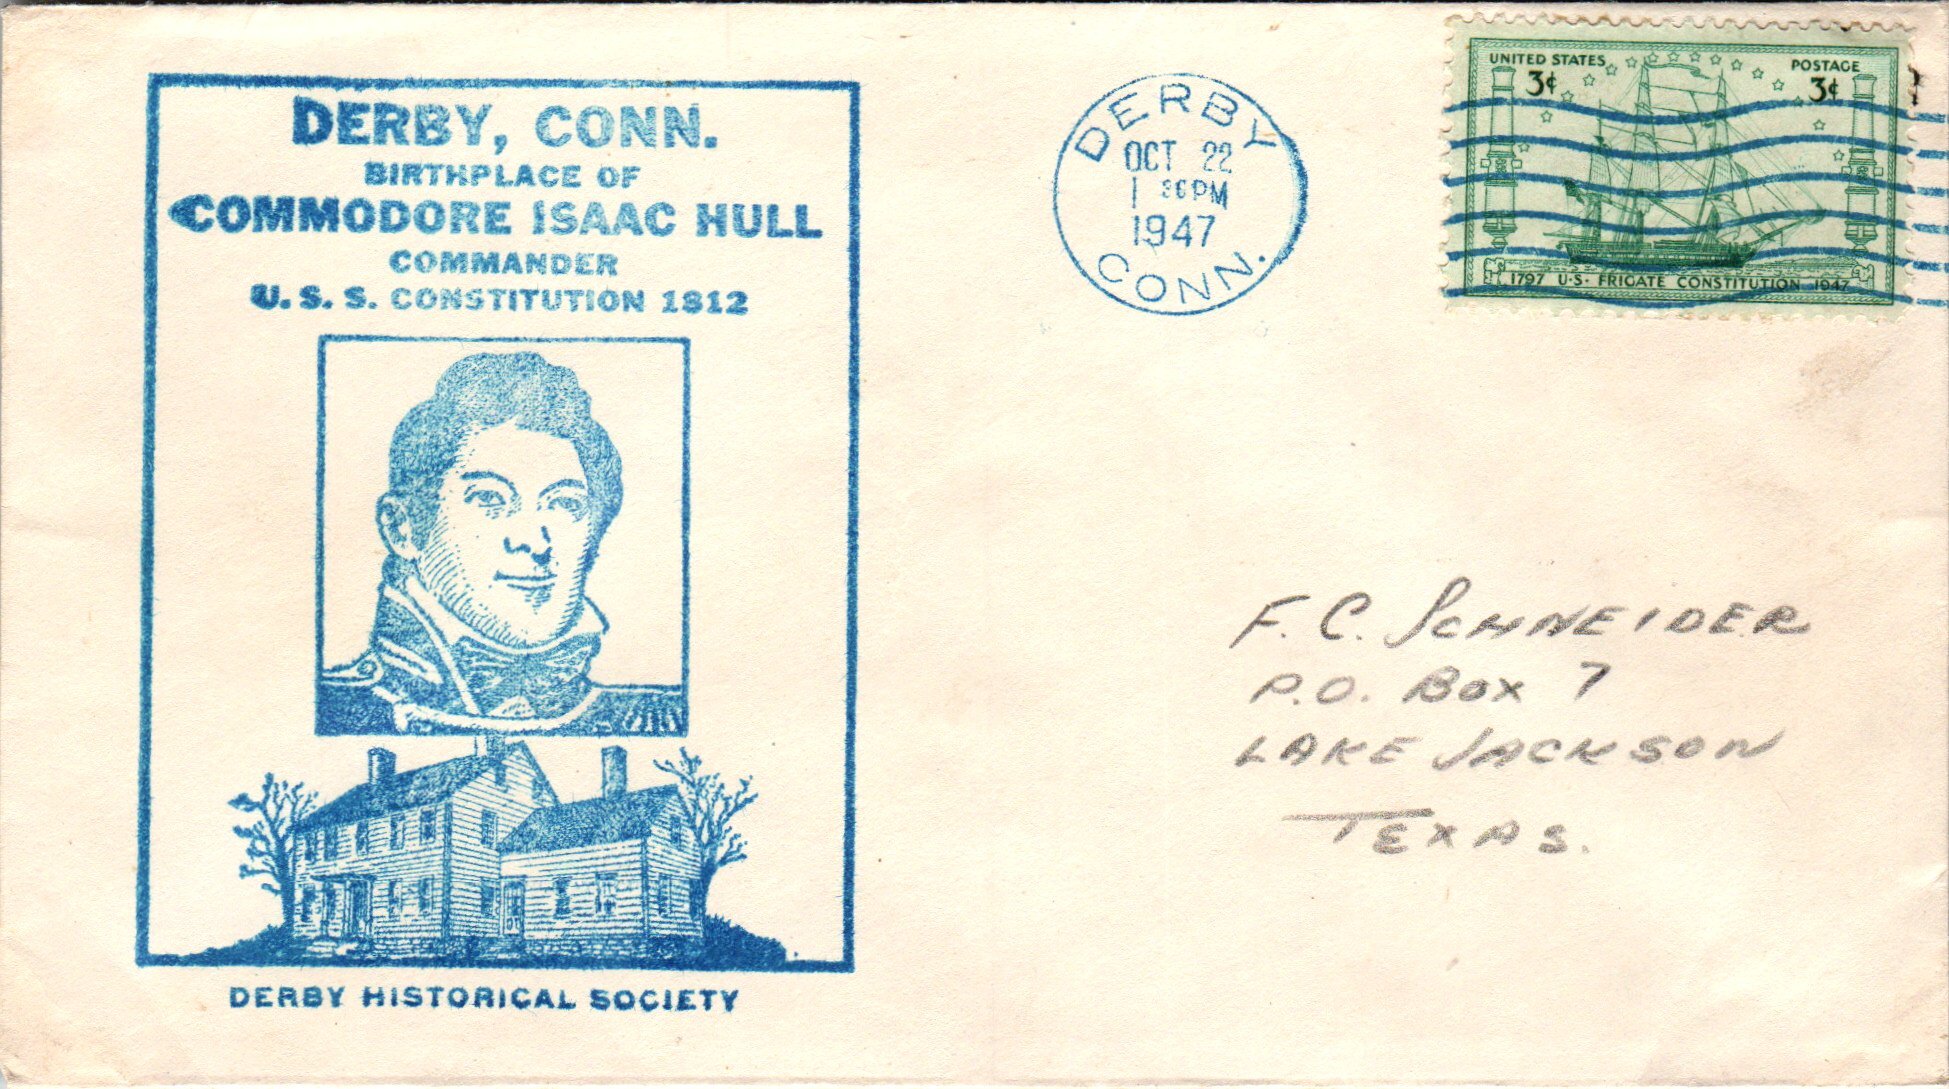 DERBY, CONN.
BIRTHPLACE OF
COMMODORE ISAAC HULL
COMMANDER
U. S. S. CONSTITUTION 1812
DERBY HISTORICAL SOCIETY
DERBY
OCT 22
1 30 PM
1947
CONN.
UNITED STATES POSTAGE
3¢ 3¢
1797 U·S· FRIGATE CONSTITUTION 1947
F. C. SCHNEIDER
P.O. BOX 7
LAKE JACKSON
TEXAS.